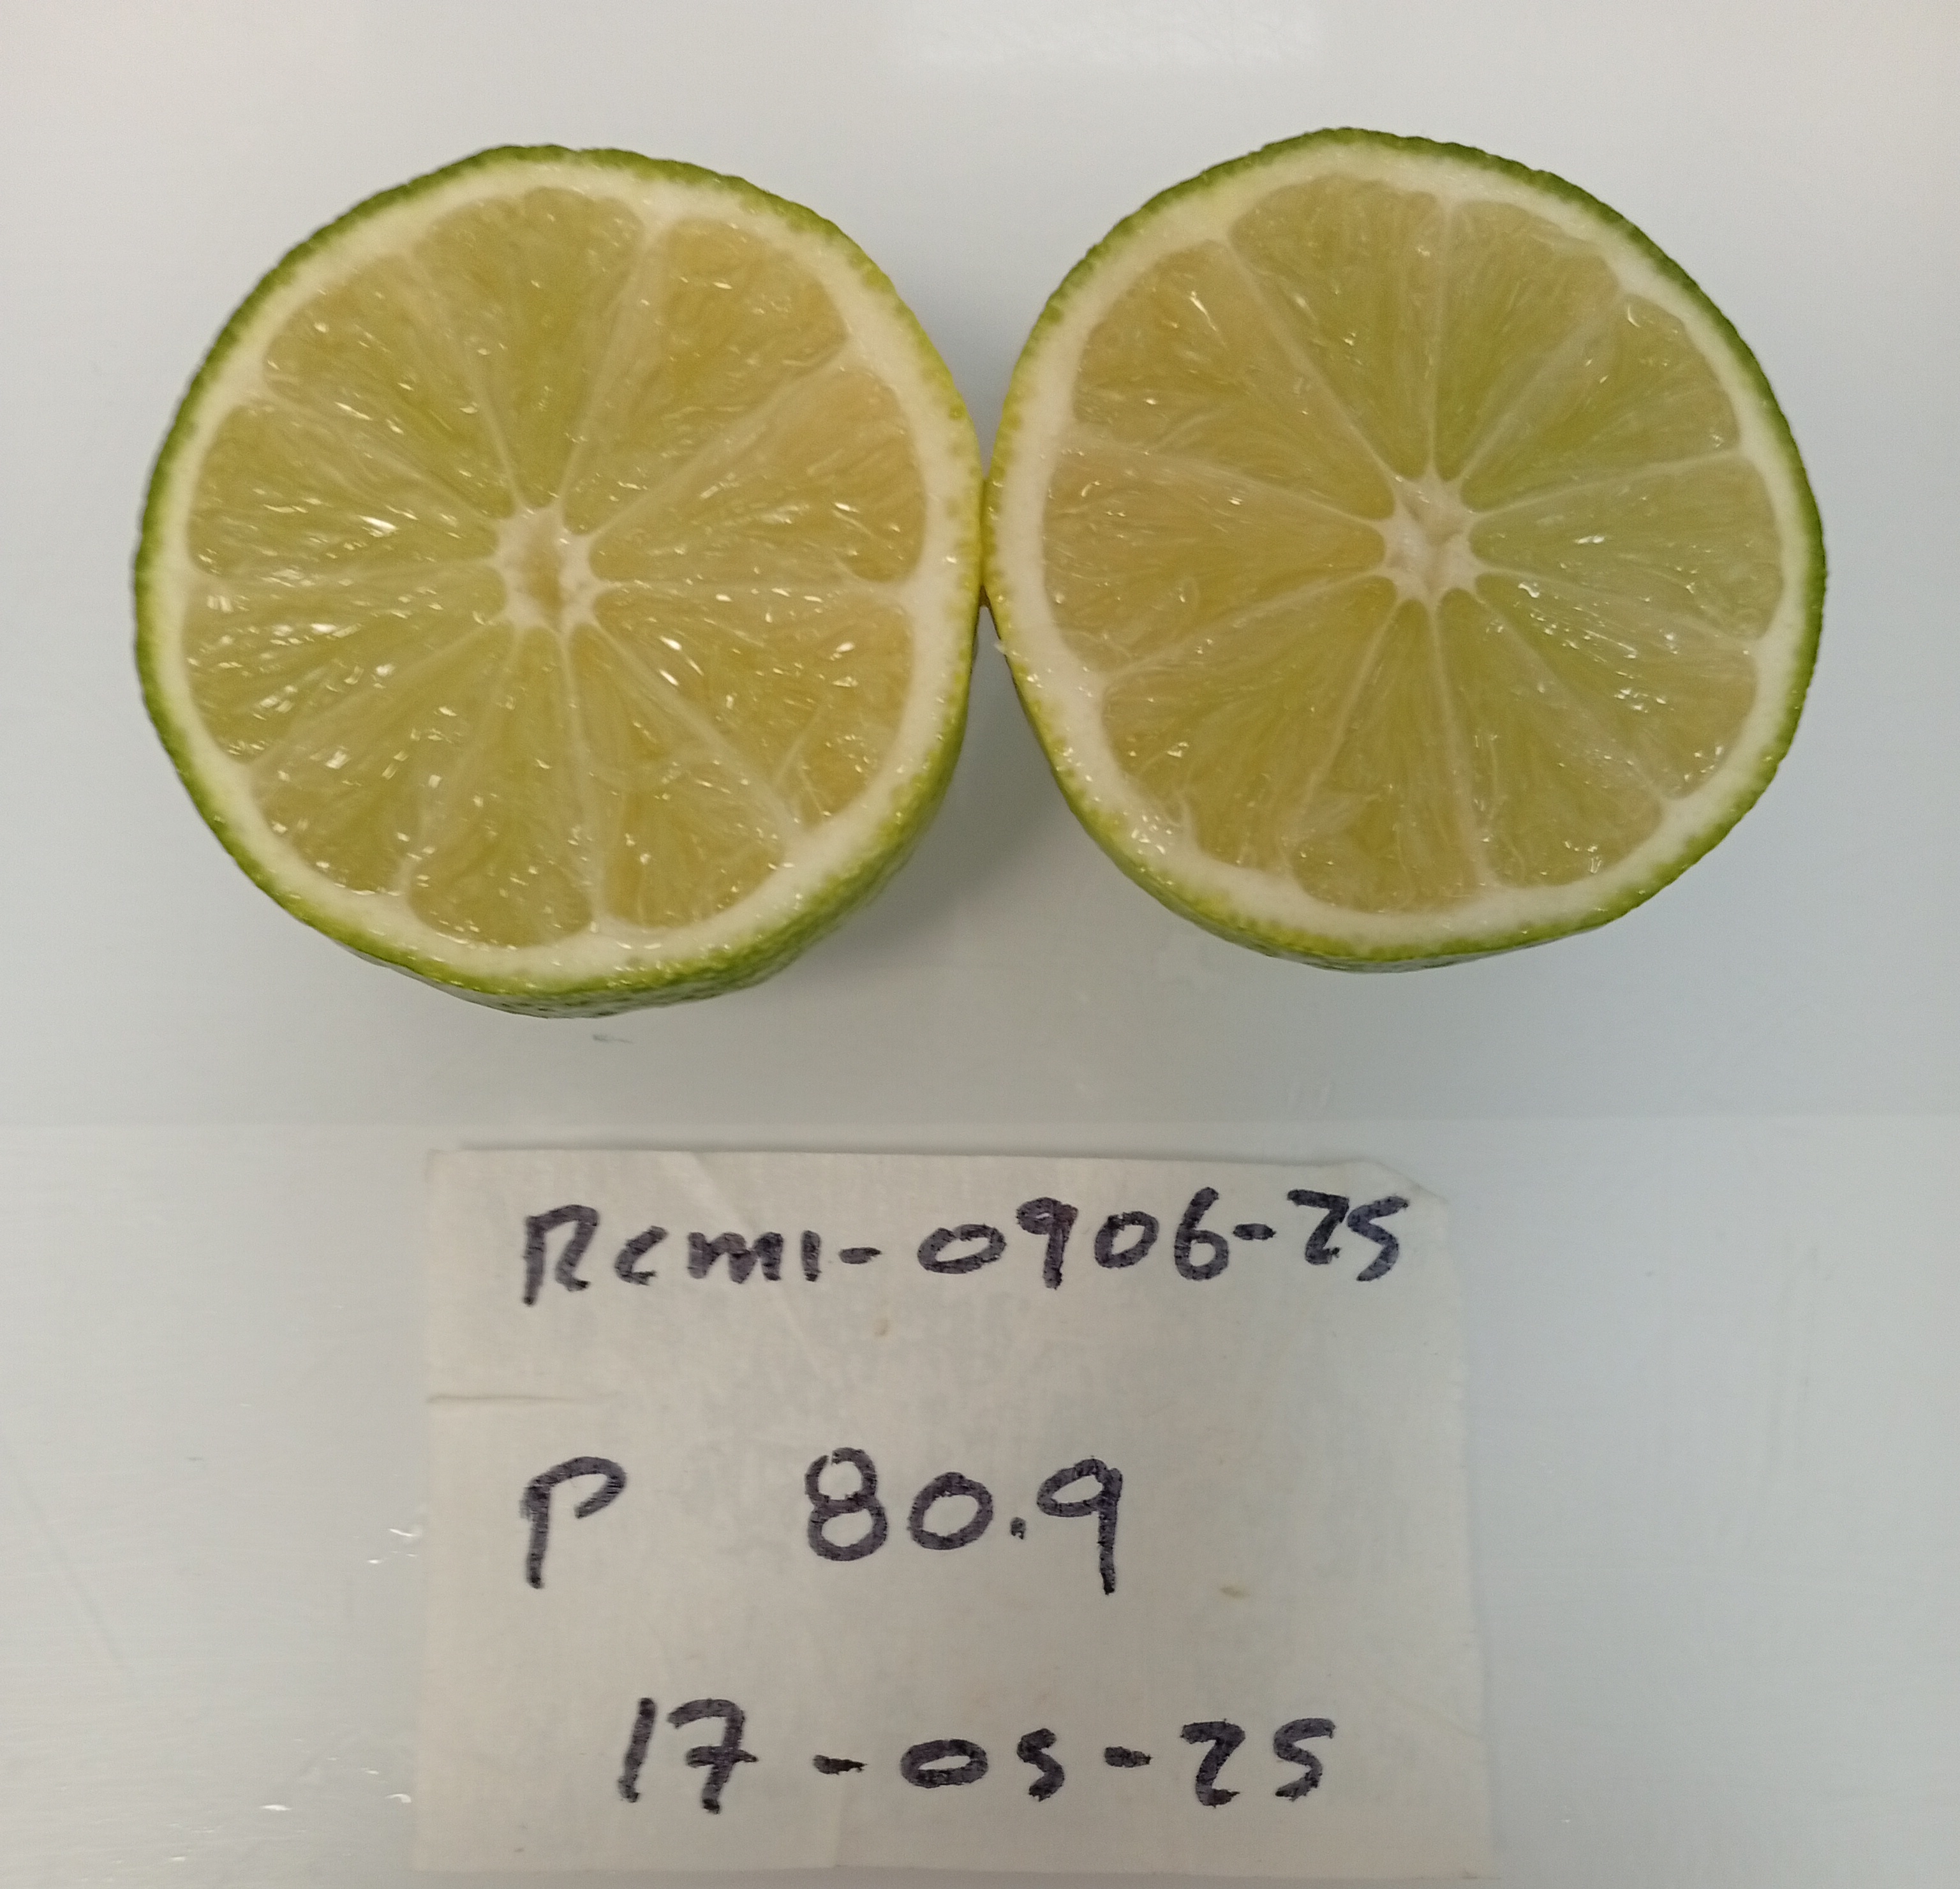 Rcmi-0906-25
P 80.9
17-05-25